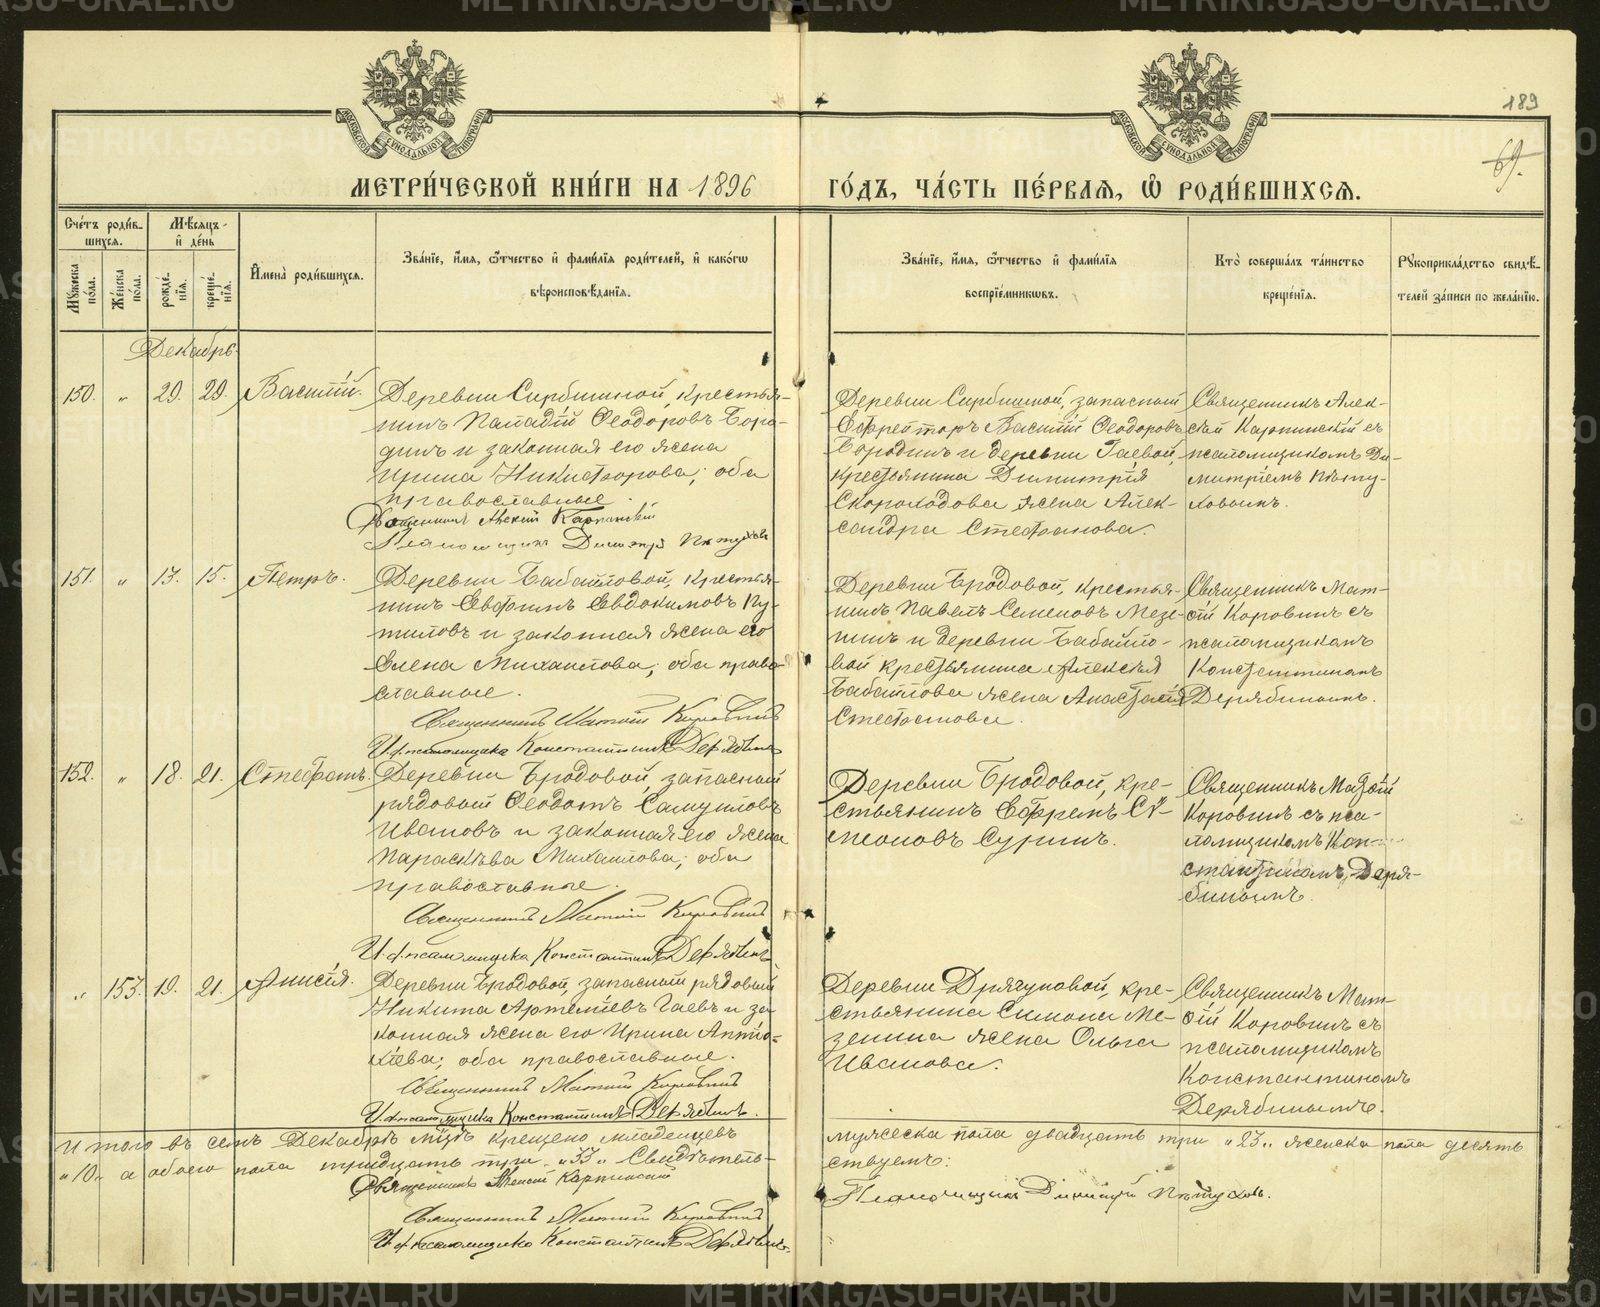 189
69.
МЕТРИ́ЧЕСКОЙ КНИ́ГИ НА 1896
ГО́ДЪ, ЧА́СТЬ ПЕ́РВАѦ, Ѿ РОДИ́ВШИХСѦ.
Сче́тъ роди́в-
шихсѧ.
Мꙋ́жеска по́ла.
Же́нска по́ла.
Мѣ́сѧцъ
и҆ де́нь
рожде́-
нїѧ.
креще́-
нїѧ.
И҆мена̀ роди́вшихсѧ.
Зва́нїе, и҆́мѧ, ѻ҆́тчество и҆ фами́лїѧ роди́телей, и҆ како́гѡ
вѣроисповѣ́данїѧ.
Зва́нїе, и҆́мѧ, ѻ҆́тчество и҆ фами́лїѧ
воспрїе́мникѡвъ.
Кто̀ соверша́лъ та́инство
креще́нїѧ.
Рꙋкоприкла́дство свидѣ́-
телей за́писи по жела́нїю.
Декабрь
150. „ 29. 29. Василій.
Деревни Сербишиной, крестья-
нинъ Палладій Ѳеодоровъ Боро-
динъ и законная его жена
Ирина Никифорова; оба
православные.
Священникъ Алексій Карпинскій
Псаломщикъ Димитрій Пѣтуховъ
Деревни Сербишной, запасный
Ефрейторъ Василій Ѳеодоровъ
Бородинъ и деревни Гаевой,
крестьянина Димитрія
Скороходова жена Алек-
сандра Стефанова.
Священникъ Алек-
сѣй Карпинскій съ
псаломщикомъ Ди-
митріемъ Пѣту-
ховымъ.
151. „ 13. 15. Петръ.
Деревни Бабайловой, крестья-
нинъ Евфимъ Евдокимовъ Пу-
тиловъ и законная жена его
Елена Михаилова; оба право-
славные.
Священникъ Матѳій Коровинъ
И. д. псаломщика Константинъ Дерябинъ
Деревни Бродовой, крестья-
нинъ Павелъ Семеновъ Мезе-
нинъ и деревни Бабайло-
вой крестьянина Алексія
Бабайлова жена Анастасія
Стефанова.
Священникъ Мат-
ѳій Коровинъ съ
псаломщикомъ
Константиномъ
Дерябинымъ.
152. „ 18. 21. Стефанъ.
Деревни Бродовой, запасный
рядовой Ѳеодотъ Самуиловъ
Ивановъ и законная его жена
Параскева Михаилова; оба
православные.
Священникъ Матѳій Коровинъ
И. д. псаломщика Константинъ Дерябинъ
Деревни Бродовой, кре-
стьянинъ Ефремъ Си-
меоновъ Суринъ.
Священникъ Матѳій
Коровинъ съ пса-
ломщикомъ Кон-
стантиномъ Деря-
бинымъ.
„ 153. 19. 21. Анисія.
Деревни Бродовой, запасный рядовой
Никита Артеміевъ Гаевъ и за-
конная жена его Ирина Антіо-
хіева; оба православные.
Священникъ Матѳій Коровинъ
И. д. псаломщика Константинъ Дерябинъ.
Деревни Дрягуновой, кре-
стьянина Симона Ме-
зенина жена Ольга
Иванова.
Священникъ Мат-
ѳій Коровинъ съ
псаломщикомъ
Константиномъ
Дерябинымъ.
Итого въ семъ Декабрѣ мѣсяцѣ крещено младенцевъ мужеска пола двадцать три „23„ женска пола десять
„10„ а обоего пола тридцать три „33„ Свидѣтель-
ствуемъ:
Священникъ Алексій Карпинскій
Псаломщикъ Димитрій Пѣтуховъ.
Священникъ Матѳій Коровинъ
И. д. псаломщика Константинъ Дерябинъ.
METRIKI.GASO-URAL.RU